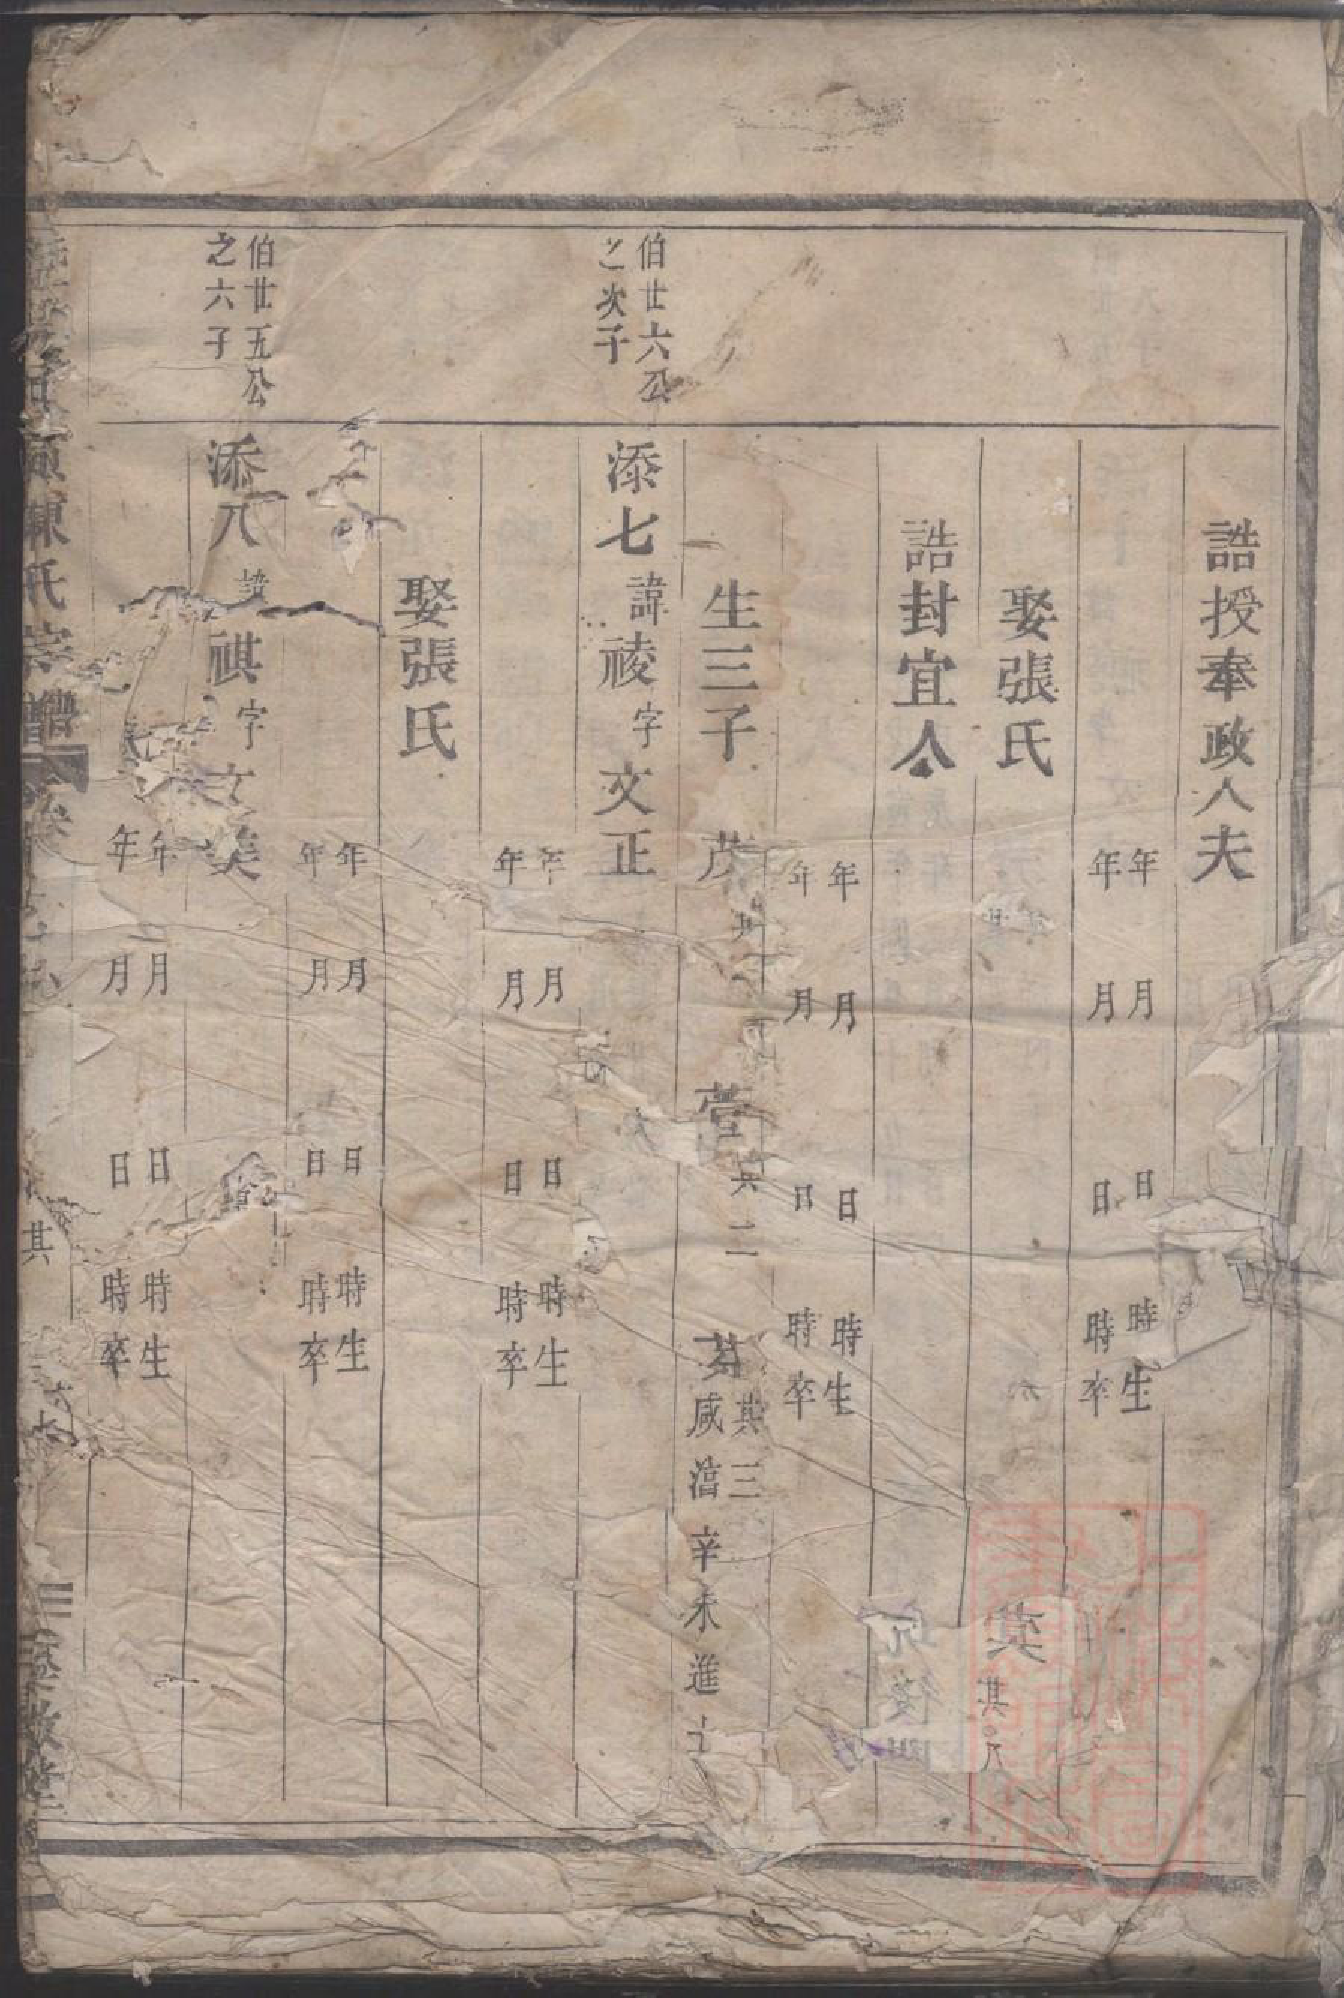 誥授奉政大夫
年月日時生
年月日時卒
娶張氏
萁其八
誥封宜人
年月日時生
年月日時卒
生三子 茂其一 萱其二 芬其三咸淳辛未進士
伯廿六公
之次子
添七諱祾字文正
年月日時生
年月日時卒
娶張氏
年月日時生
年月日時卒
伯廿五公
之六子
添八 祺字文美
年月日時生
年月日時卒
陳氏宗譜